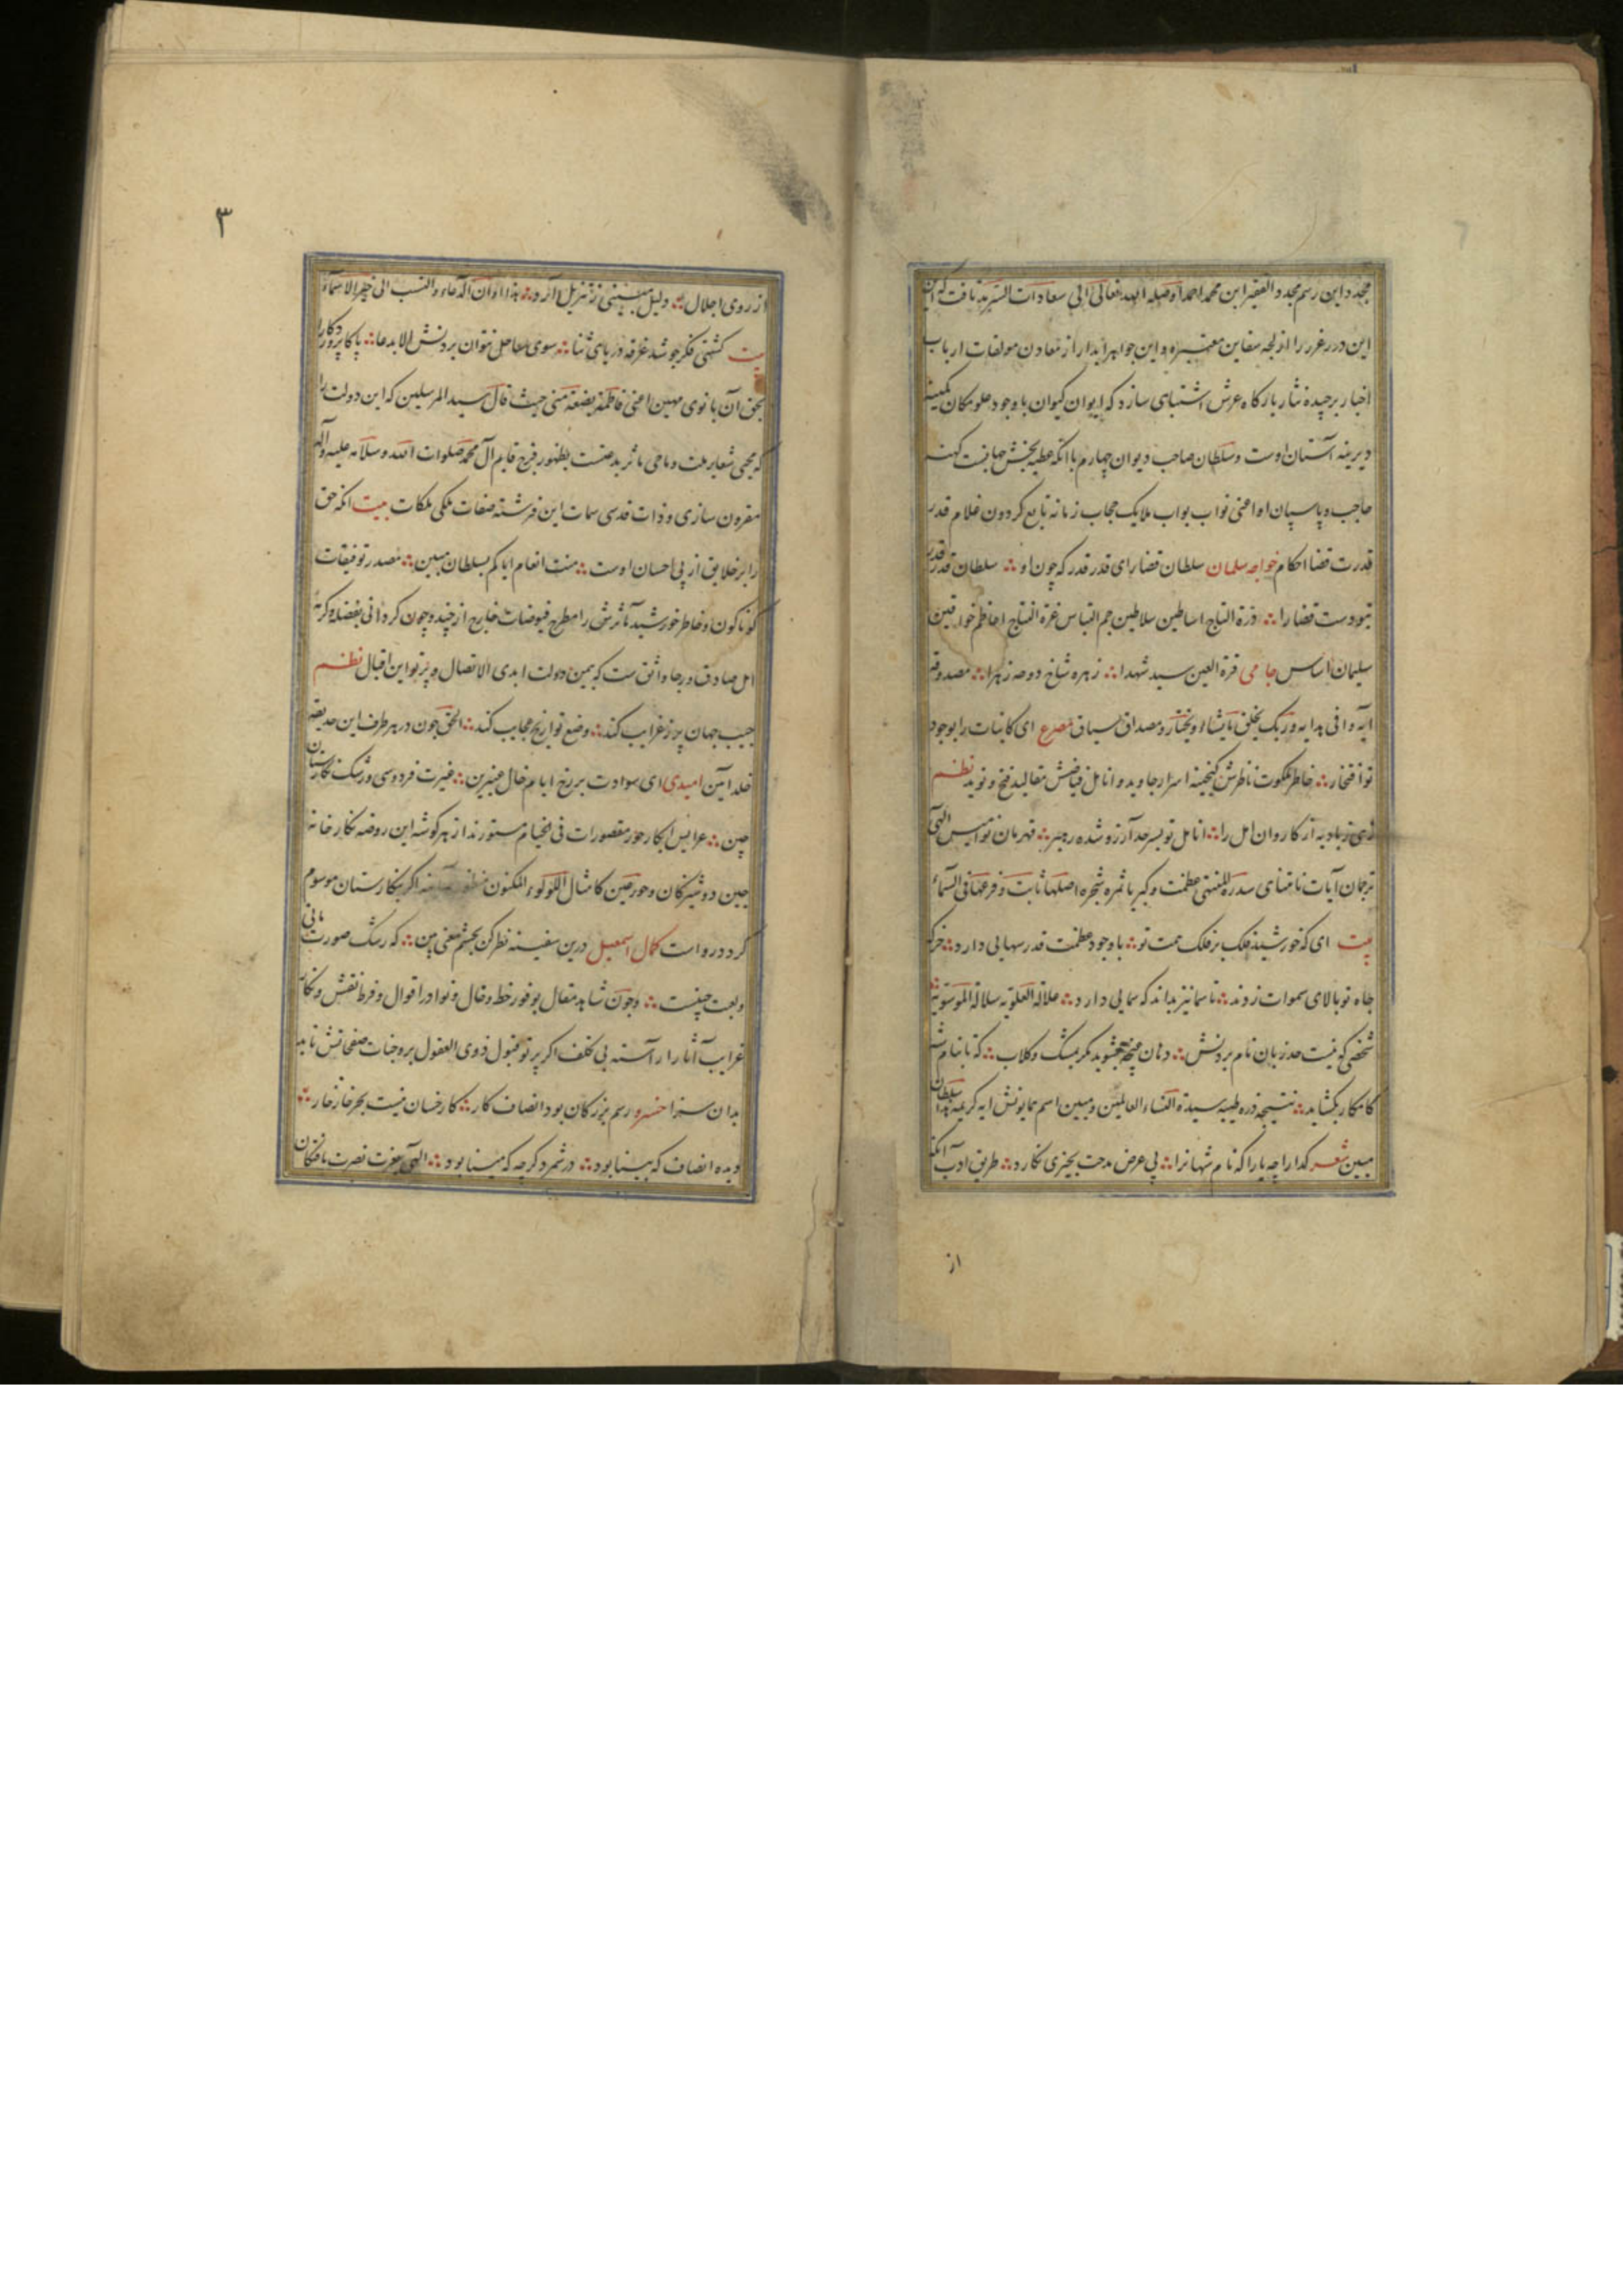 مجدد این رسم مجدد الفقیر ابن محمد احمد اوصله الله تعالی الی سعادات السرمدیه یافت که این
این درر غرر را از لجه سفاین معتبره و این جواهر آبدار از معادن مولفات ارباب
اخبار برچیده نثار بارگاه عرش اشتباهی سازد که ایوان کیوان باوجود علو مکان کمینه
دیرینه آستان اوست و سلطان صاحب دیوان چهارم باآنکه عطیه بخش جهانیست کهنه
حاجب و پاسبان او اعنی نواب بواب ملایک حجاب زمانه تابع کردون غلام قدر
قدرت قضا احکام خواجه سلمان سلطان قضا رای قدر قدر که چون او ∴ سلطان قدر قدر
نبودست قضا را ∴ درة التاج اساطین سلاطین جم اقتباس غرة النتاج اعاظم خواقین
سلیمان اساس جامی قرة العین سید شهدا ∴ زهره شاخ دوحه زهرا ∴ مصدوقه
ایه وافی هدایه وربک یخلق ما یشاء ویختار و مصداق سیاق مصرع ای کاینات را بوجود
تو افتخار ∴ خاطر ملکوت ناظرش کنجینه اسرار جاوید و انامل فیاضش مقالید فتح و نوید نظم
زهی ز بادیه آز کاروان امل را ∴ انامل تو بسرحد آرزو شده رهبر ∴ قهرمان نوامیس الهی
ترجمان آیات نامتناهی سدرة المنتهی عظمت و کبریا ثمره شجره اصلها ثابت وفرعها فی السماء
بیت ای که خورشید فلک بر فلک همت تو ∴ باوجود عظمت قدر سهایی دارد ∴ خرکه
جاه تو بالای سموات زدند ∴ تا سما نیز بداند که سمایی دارد ∴ علالة العلویه سلالة الموسویه
شخصی که نیست حد زبان نام بردنش ∴ دهان غنچه بشوید مکر بمشک وکلاب ∴ که تا بنام
کامکار بکشاید ∴ نتیجه ذره طیبه سیدة النساء العالمین و مبین اسم همایونش ایه کریمه بذا سلطان
مبین شعر کدا را چه یارا که نام شهانرا ∴ پی عرض مدحت بچیزی نکارد ∴ طریق ادب آنکه
از
۳
از روی اجلال ∴ دلیل مبینی ز تنزیل آرد ∴ هذا اوان الدعاء والنسب الی خیر الاسماء
بیت کشتی فکر چو شد غرقه دریای ثنا ∴ سوی ساحل نتوان بردنش الا بدعا ∴ پاکا پروردکارا
بحق آن بانوی مهین اعنی فاطمة بضعة منی حیث قال سید المرسلین که این دولت را
که محیی شعایر ملت و ماحی مآثر بدعتست بظهور فرخ قایم آل محمد صلوات الله وسلامه علیه وآله
مقرون سازی و ذات قدسی سمات این فرشته صفات ملکی ملکات بیت انکه حق
را بر خلایق از پی احسان اوست ∴ منت انعام ایاکم بسلطان مبین ∴ مصدر توفیقات
کوناکون و خاطر خورشید مآثرش را مطرح فیوضات خارج از چند و چون کردانی بفضله وکرمه
امل صادق و رجا واثق ست که بیمن دولت ابدی الاتصال و پرتو این اقبال نظم
جیب جهان پر ز غرایب کند ∴ وضع تواریخ عجایب کند ∴ الحق چون در هر طرف این حدیقه
خلد آیین امیدی ای سوادت بر رخ ایام خال عنبرین ∴ غیرت فردوسی و رشک نکارستان
چین ∴ عرایس ابکار حور مقصورات فی الخیام مستورند از هر کوشه این روضه نکار خانه
چین دوشیزکان وحور عین کامثال اللؤلوء المکنون اکر بنکارستان موسوم
کردد رواست کمال اسمعیل درین سفینه نظر کن بچشم معنی بین ∴ که رشک صورت مانی
ولعبت چینست ∴ وچون شاهد مقال بوفور خط وخال و نوادر اقوال وفرط نقش ونکار
غرایب آثار آراسته بی تکلف اکر پرتو قبول ذوی العقول بر وجنات صفحاتش تابد
بدان سزا خسرو رسم بزرکان بود انصاف کار ∴ کار خسان نیست بجز خار خار ∴
دیده انصاف که بینا بود ∴ در شمرد کرچه که مینا بود ∴ الهی بعزت نصرت یافتکان